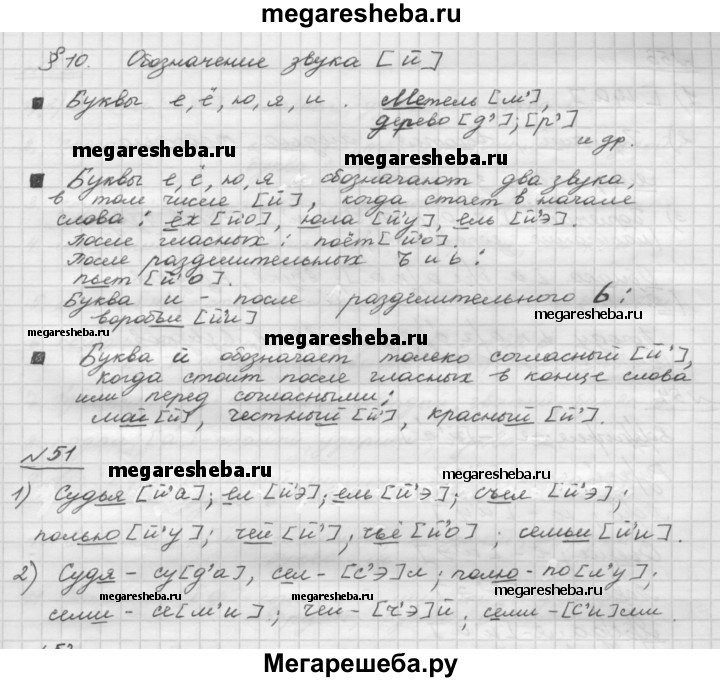 megaresheba.ru
§10. Обозначение звука [й]
Буквы е, ё, ю, я, и. Метель [м'],
дерево [д']; [р']
и др.
megaresheba.ru
megaresheba.ru
Буквы е, ё, ю, я обозначают два звука,
в том числе [й], когда стает в начале
слова: ёх [й'о], юла [й'у], ель [й'э].
После гласных: поёт [й'о].
После разделительных ъ и ь:
пьет [й'о].
Буква и - после разделительного ь:
воробьи [й'и]
megaresheba.ru
megaresheba.ru
megaresheba.ru
Буква й обозначает только согласный [й'],
когда стоит после гласных в конце слова
или перед согласными:
май [й], честный [й'], красный [й'].
№51
megaresheba.ru
megaresheba.ru
1) Судья [й'а]; ел [й'э]; ель [й'э]; съел [й'э];
полью [й'у]; чей [й'], чьё [й'о]; семьи [й'и].
2) Судя - су[д'а], сел - [с'э]л; полю - по[л'у];
megaresheba.ru
megaresheba.ru
семи - се[м'и]; чей - [ч'э]й; семи - [с'и]ми.
Мегарешеба.ру